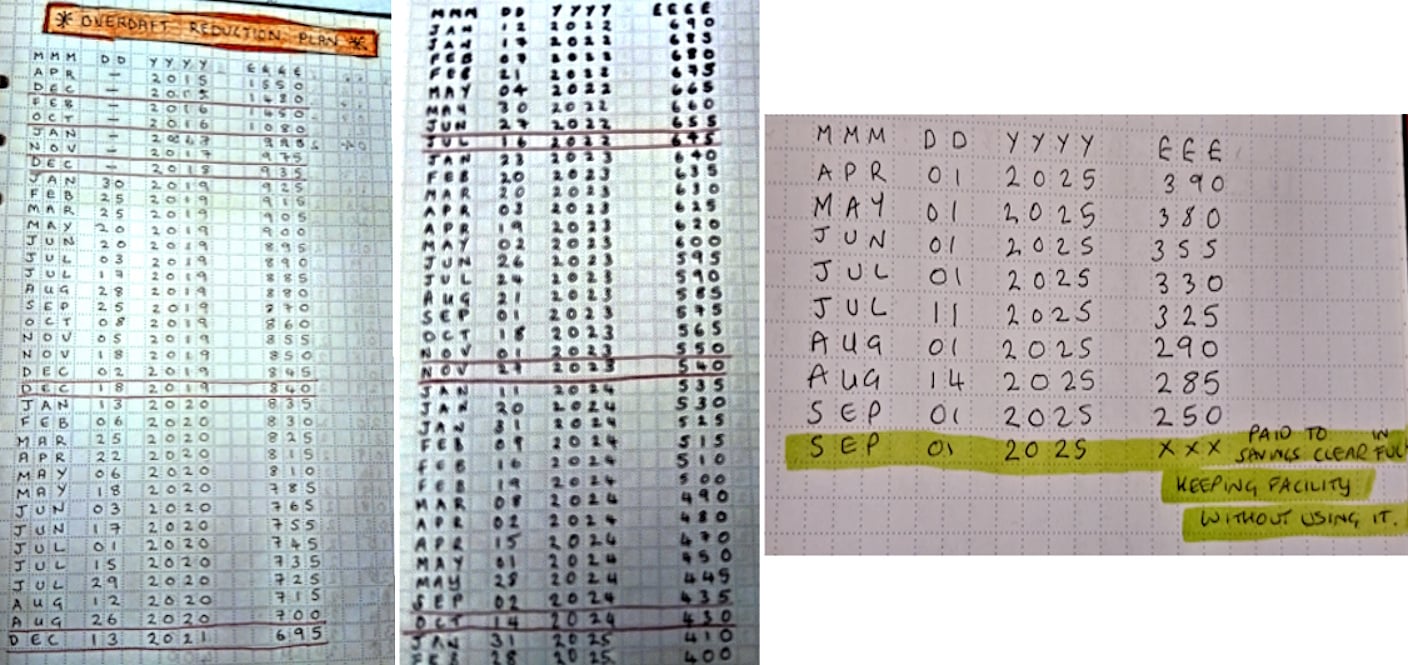 * OVERDRAFT REDUCTION PLAN *
MMM DD YYYY ££££
APR - 2015 1550
DEC - 2015 1480
FEB - 2016 1450
OCT - 2016 1080
JAN - 2017
NOV - 2017 975
DEC - 2018 935
JAN 30 2019 925
FEB 25 2019 915
MAR 25 2019 905
MAY 20 2019 900
JUN 20 2019 895
JUL 03 2019 890
JUL 17 2019 885
AUG 28 2019 880
SEP 25 2019 870
OCT 08 2019 860
NOV 05 2019 855
NOV 18 2019 850
DEC 02 2019 845
DEC 18 2019 840
JAN 13 2020 835
FEB 06 2020 830
MAR 25 2020 825
APR 22 2020 815
MAY 06 2020 810
MAY 18 2020 785
JUN 03 2020 765
JUN 17 2020 755
JUL 01 2020 745
JUL 15 2020 735
JUL 29 2020 725
AUG 12 2020 715
AUG 26 2020 700
DEC 13 2021 695
MMM DD YYYY ££££
JAN 12 2022 690
JAN 17 2022 685
FEB 07 2022 680
FEB 21 2022 675
MAY 04 2022 665
MAY 30 2022 660
JUN 27 2022 655
JUL 16 2022 645
JAN 23 2023 640
FEB 20 2023 635
MAR 20 2023 630
APR 03 2023 625
APR 19 2023 620
MAY 02 2023 600
JUN 26 2023 595
JUL 24 2023 590
AUG 21 2023 585
SEP 01 2023 575
OCT 18 2023 565
NOV 01 2023 550
NOV 27 2023 540
JAN 11 2024 535
JAN 20 2024 530
JAN 31 2024 525
FEB 09 2024 515
FEB 16 2024 510
FEB 19 2024 500
MAR 08 2024 490
APR 02 2024 480
APR 15 2024 470
MAY 01 2024 450
MAY 28 2024 445
SEP 02 2024 435
OCT 14 2024 430
JAN 31 2025 410
FEB 28 2025 400
MMM DD YYYY £££
APR 01 2025 390
MAY 01 2025 380
JUN 01 2025 355
JUL 01 2025 330
JUL 11 2025 325
AUG 01 2025 290
AUG 14 2025 285
SEP 01 2025 250
SEP 01 2025 XXX PAID TO IN
SAVINGS CLEAR FULL
KEEPING FACILITY
WITHOUT USING IT.